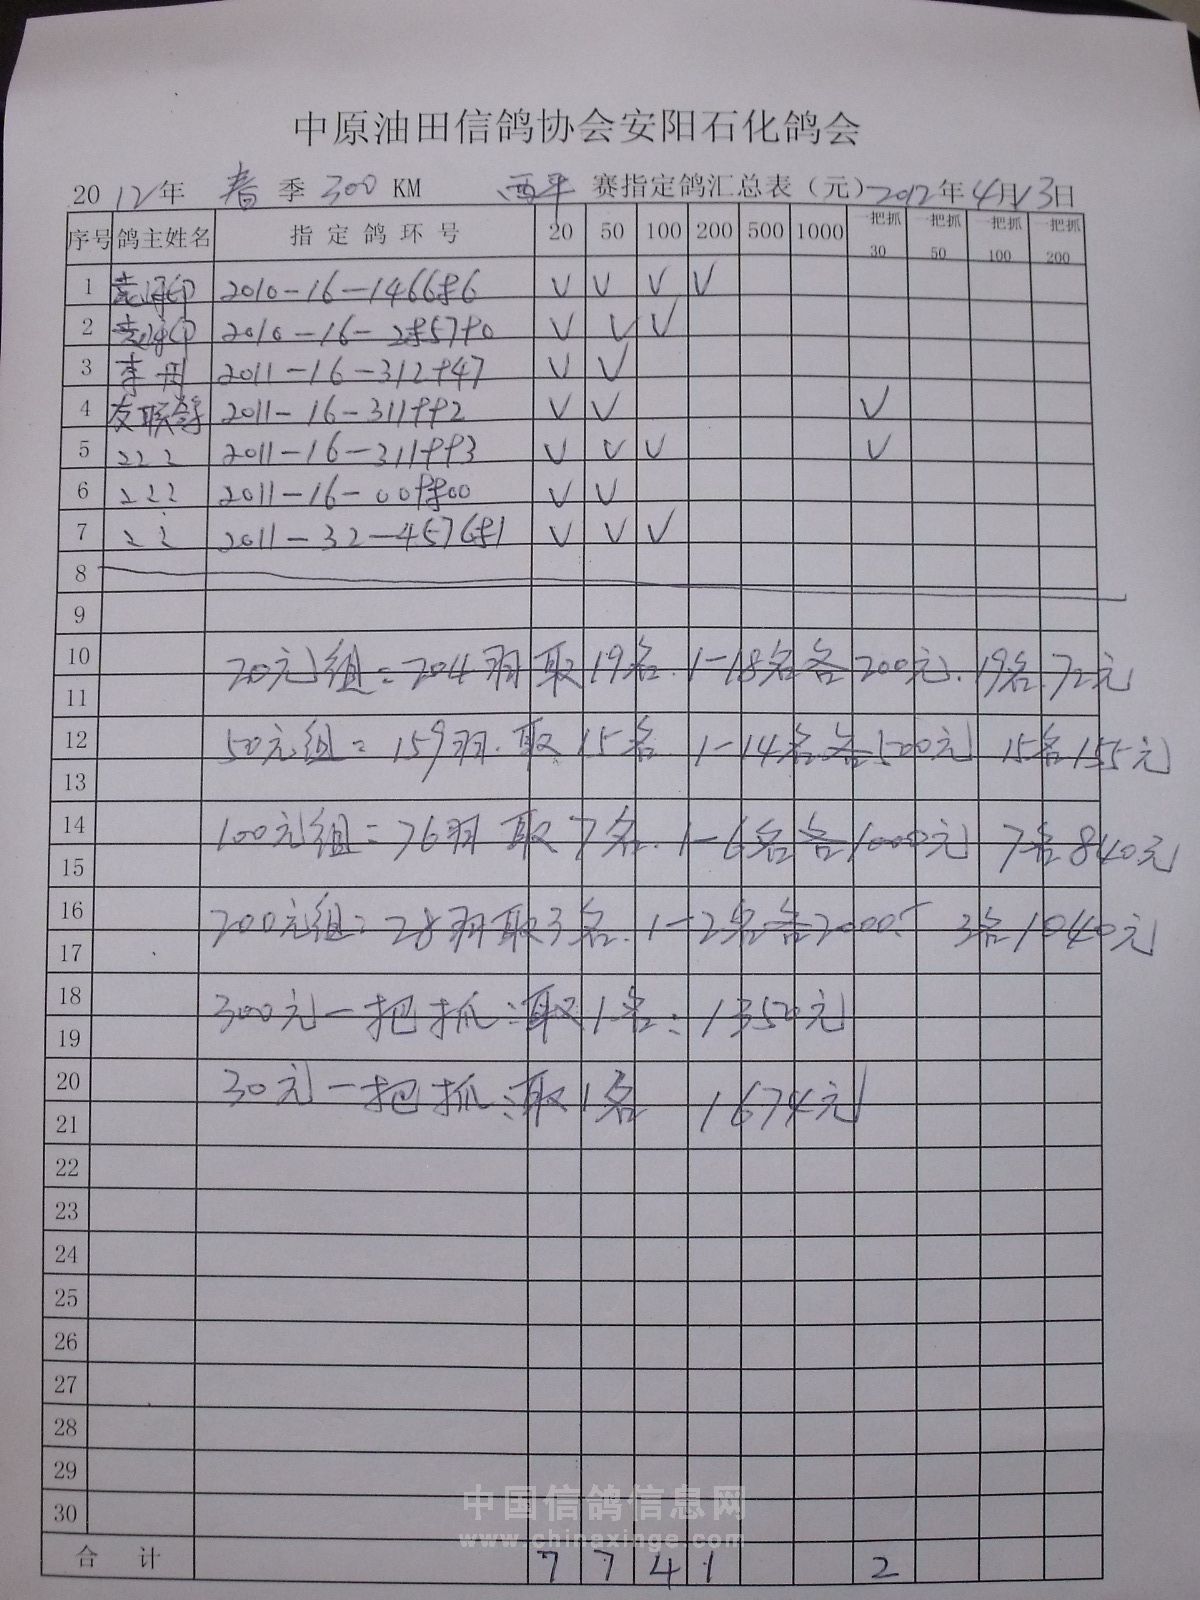 中原油田信鸽协会安阳石化鸽会
2012年 春 季 300 KM 西平 赛指定鸽汇总表（元）2012年4月13日
序号 鸽主姓名 指定鸽环号 20 50 100 200 500 1000 一把抓30 一把抓50 一把抓100 一把抓200
1 2010-16-1466 6 V V V V
2 2010-16- V V V
3 李丹 2011-16-312 47 V V
4 友联鸽 2011-16-311 2 V V V
5 〃 〃 〃 2011-16-311 3 V V V V
6 〃 〃 〃 2011-16-00 00 V V
7 〃 〃 2011-32-4576 1 V V V
8
9
10
20元组:204羽取19名.1-18名各200元.19名.72元
11
12
50元组:159羽.取15名 1-14名各500元 15名155元
13
14
100元组:76羽取7名.1-6名各1000元 7名840元
15
16
200元组:28羽取3名.1-2名各2000 3名1040元
17
18
300元一把抓:取1名:1350元
19
20
30元一把抓:取1名 1674元
21
22
23
24
25
26
27
28
29
30
合计 7 7 4 1 2
中国信鸽信息网
www.chinaxinge.com